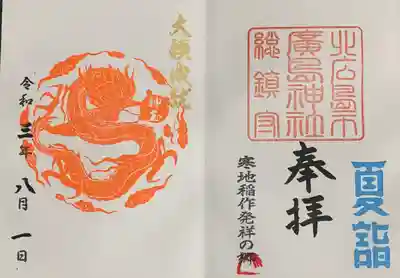 夏詣
北広島市
廣島神社
総鎮守
奉拝
寒地稲作発祥の郷
令和三年八月一日